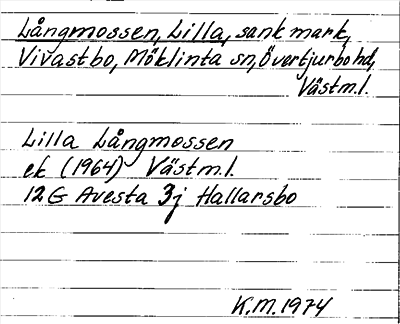 Långmossen, Lilla, sank mark,
Vivastbo, Möklinta sn, Övertjurbo hd,
Västm.l.
Lilla Långmossen
ek (1964) Västm.l.
12G Avesta 3j Hallarsbo
K.M. 1974